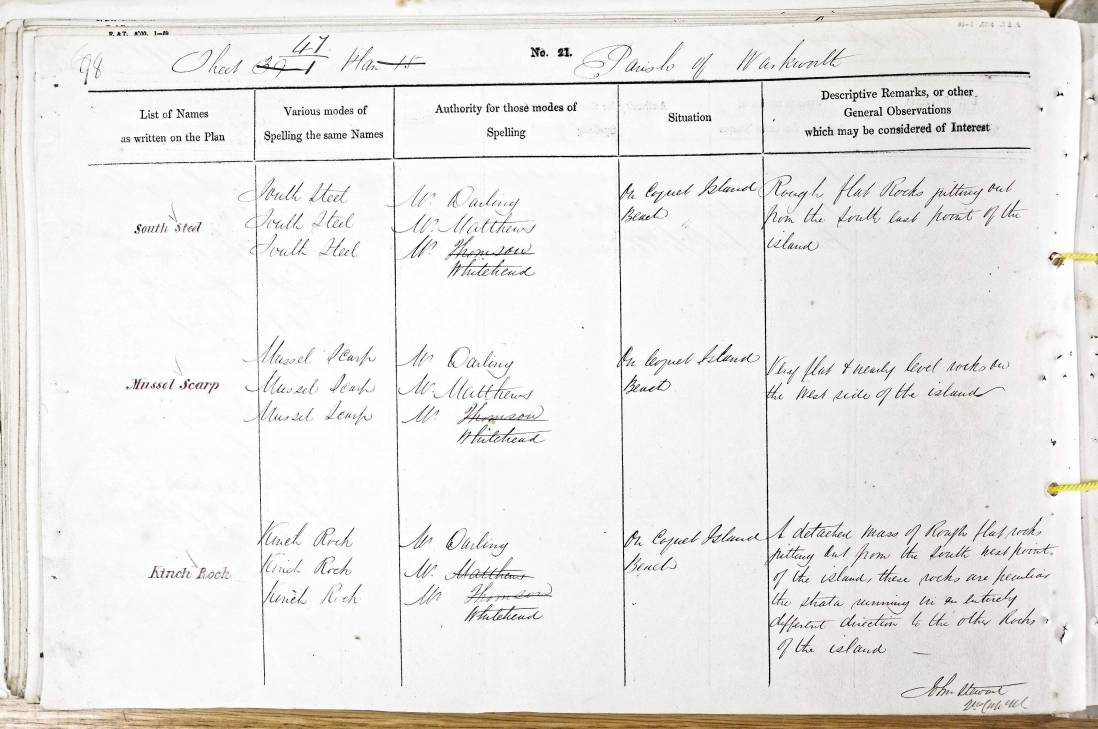 98
Sheet 39-1 Plan 15
47
No. 21.
Parish of Warkworth
List of Names
as written on the Plan
Various modes of
Spelling the same Names
Authority for those modes of
Spelling
Situation
Descriptive Remarks, or other
General Observations
which may be considered of Interest
South Steel
South Steel
South Steel
South Steel
Mr. Darling
Mr. Matthews
Mr. Thomson
Whitehead
On Coquet Island
Beach
Rough flat Rocks jutting out
from the South east point of the
island
Mussel Scarp
Mussel Scarp
Mussel Scarp
Mussel Scarp
Mr Darling
Mr. Matthews
Mr. Thomson
Whitehead
On Coquet Island
Beach
Very flat & nearly level rocks on
the West side of the island
Kinch Rock
Kinch Rock
Kinch Rock
Kinch Rock
Mr Darling
Mr. Matthews
Mr Thomson
Whitehead
On Coquet Island
Beach
"
A detached mass of Rough flat rocks
jutting out from the South West point
of the island, these rocks are peculiar
the strata running in an entirely
different direction to the other Rocks
of the island —
John Stewart